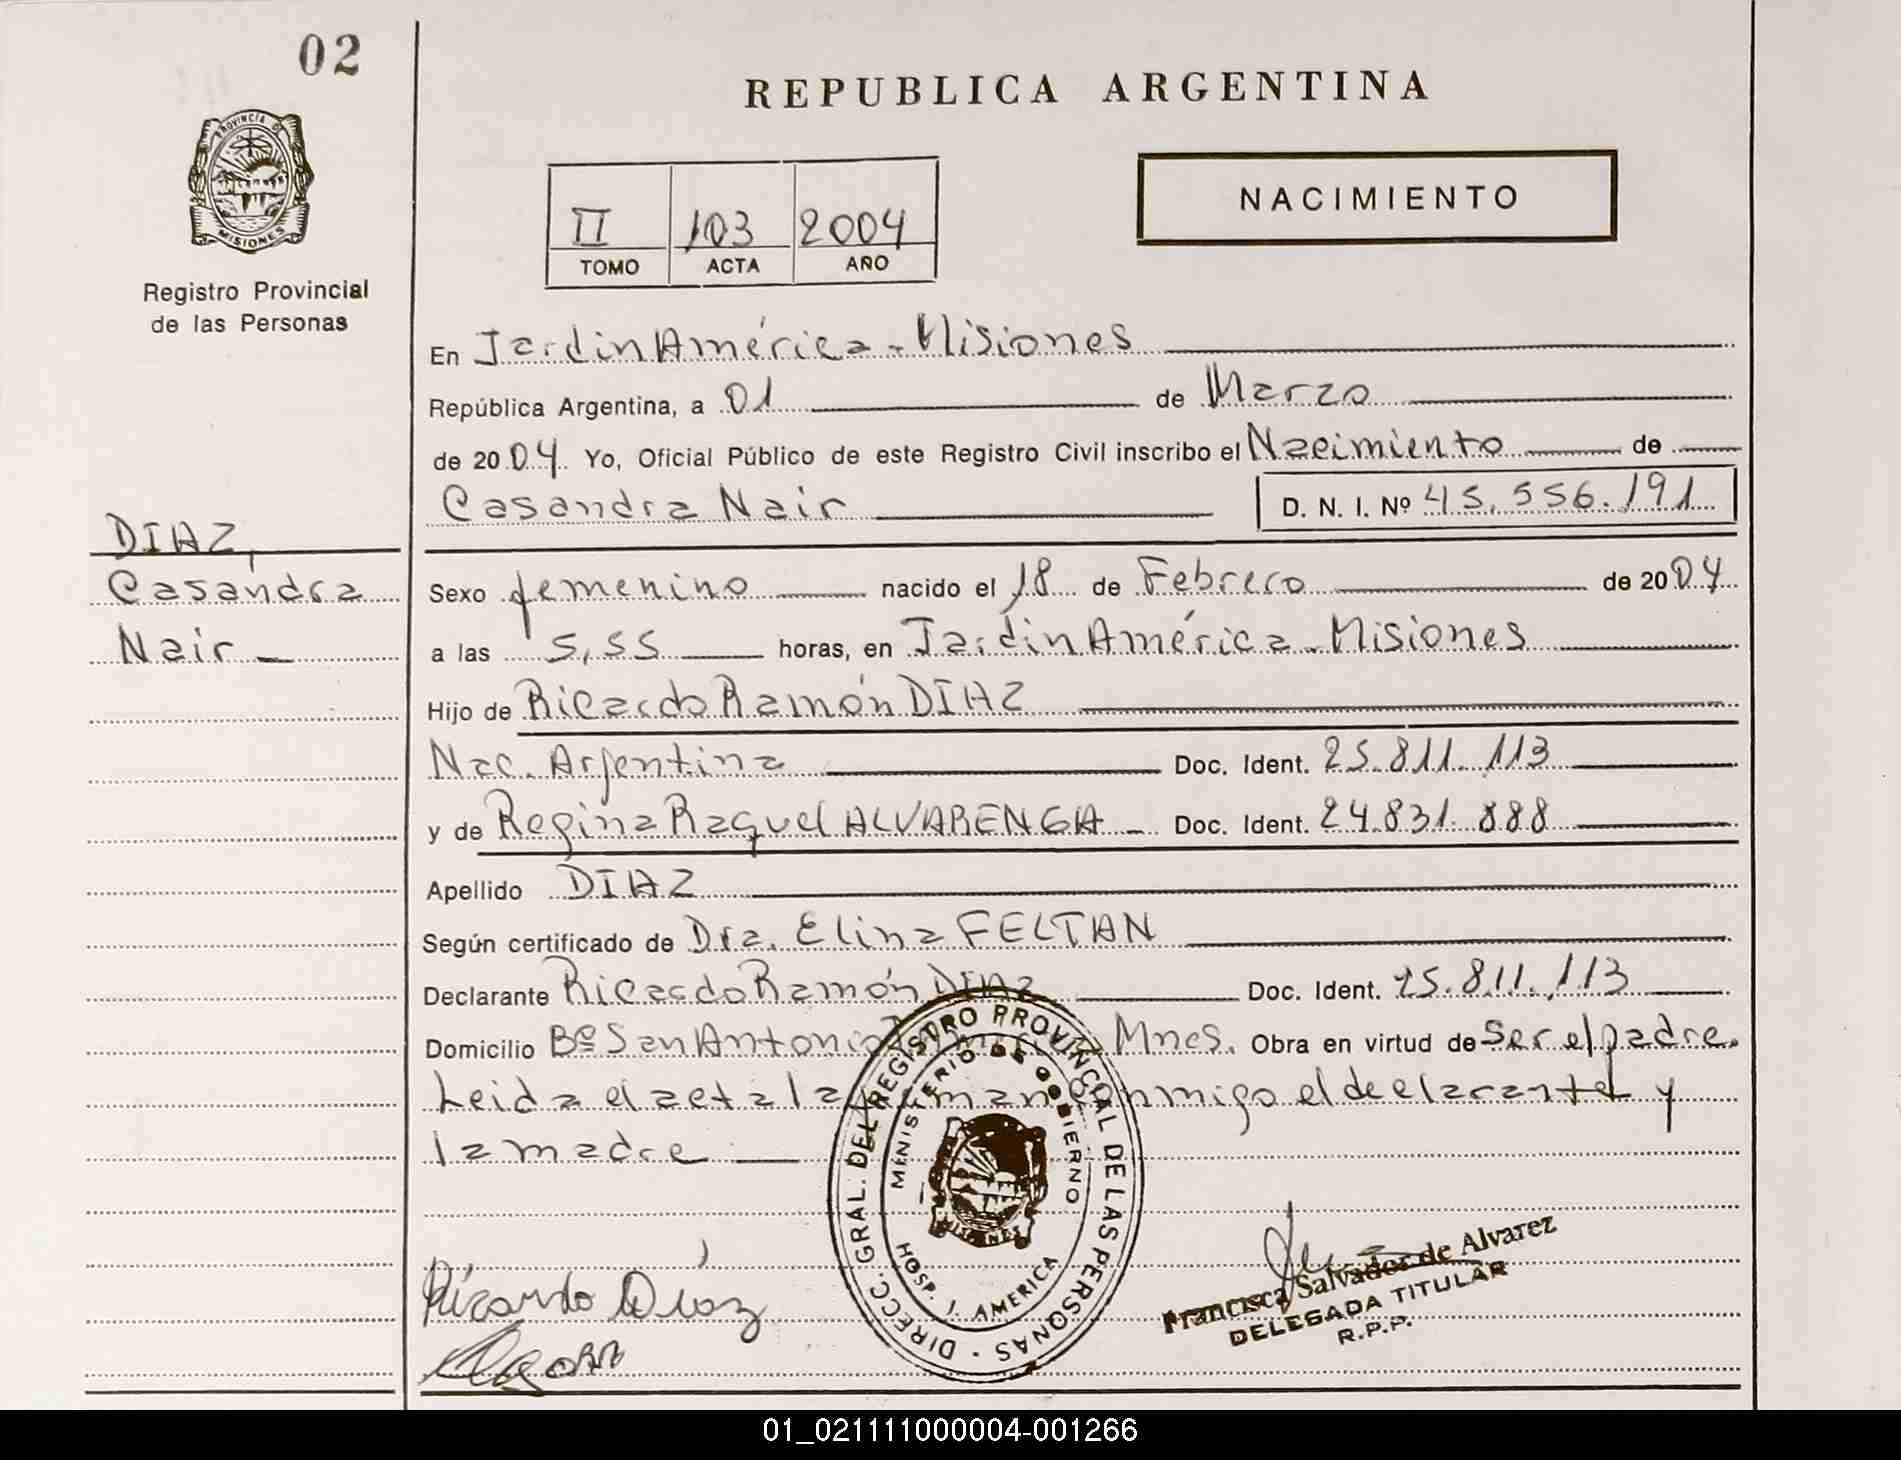 02
PROVINCIA DE
MISIONES
Registro Provincial
de las Personas
REPUBLICA ARGENTINA
II 103 2004
TOMO ACTA AÑO
NACIMIENTO
En Jardin América - Misiones
República Argentina, a 01 de Marzo
de 2004 Yo, Oficial Público de este Registro Civil inscribo el Nacimiento de
Casandra Nair D. N. I. Nº 45.556.191
DIAZ,
Casandra
Nair
Sexo femenino nacido el 18 de Febrero de 2004
a las 5,55 horas, en Jardin América - Misiones
Hijo de Ricardo Ramón DIAZ
Nac. Argentina Doc. Ident. 25.811.113
y de Regina Raquel ALVARENGA Doc. Ident. 24.831.888
Apellido DIAZ
Según certificado de Dra. Elina FELTAN
Declarante Ricardo Ramón DIAZ Doc. Ident. 25.811.113
Domicilio Bº San Antonio Mnes. Obra en virtud de ser el padre.
Leida el acta la firman conmigo el declarante y
la madre
DIRECC. GRAL. DEL REGISTRO PROVINCIAL DE LAS PERSONAS
MINISTERIO DE GOBIERNO
MISIONES
HOSP. J. AMERICA
Ricardo Diaz
Francisca Salvador de Alvarez
DELEGADA TITULAR
R.P.P.
01_021111000004-001266